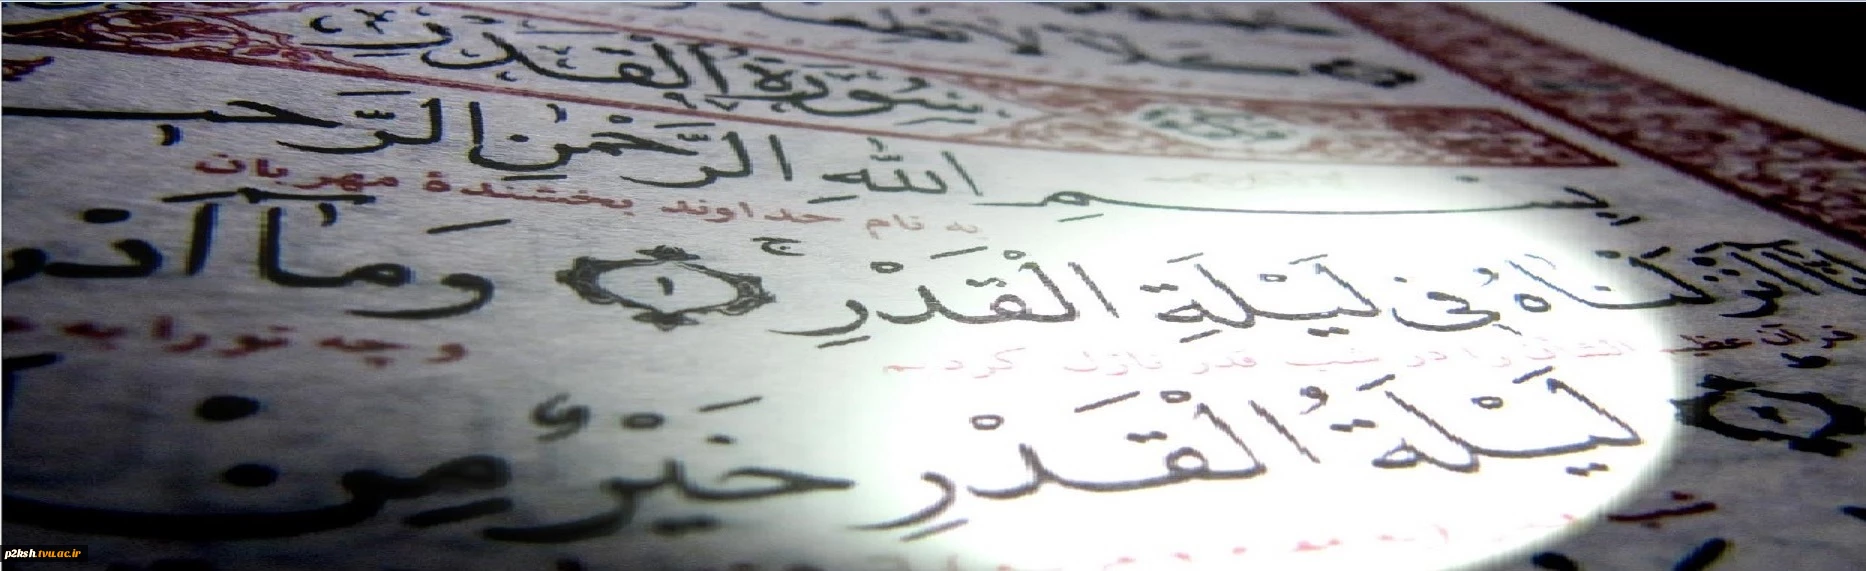 سُورَةُ الْقَدْرِ
بِسْمِ اللَّهِ الرَّحْمٰنِ الرَّحِـ
به نام خداوند بخشندهٔ مهربان
أَنْزَلْنَاهُ فِي لَيْلَةِ الْقَدْرِ ج ١ وَمَا
قرآن عظیم الشأن را در شب قدر نازل کردیم و چه تو را به
٢ لَيْلَةُ الْقَدْرِ خَيْرٌ مِنْ
p2ksh.tvu.ac.ir